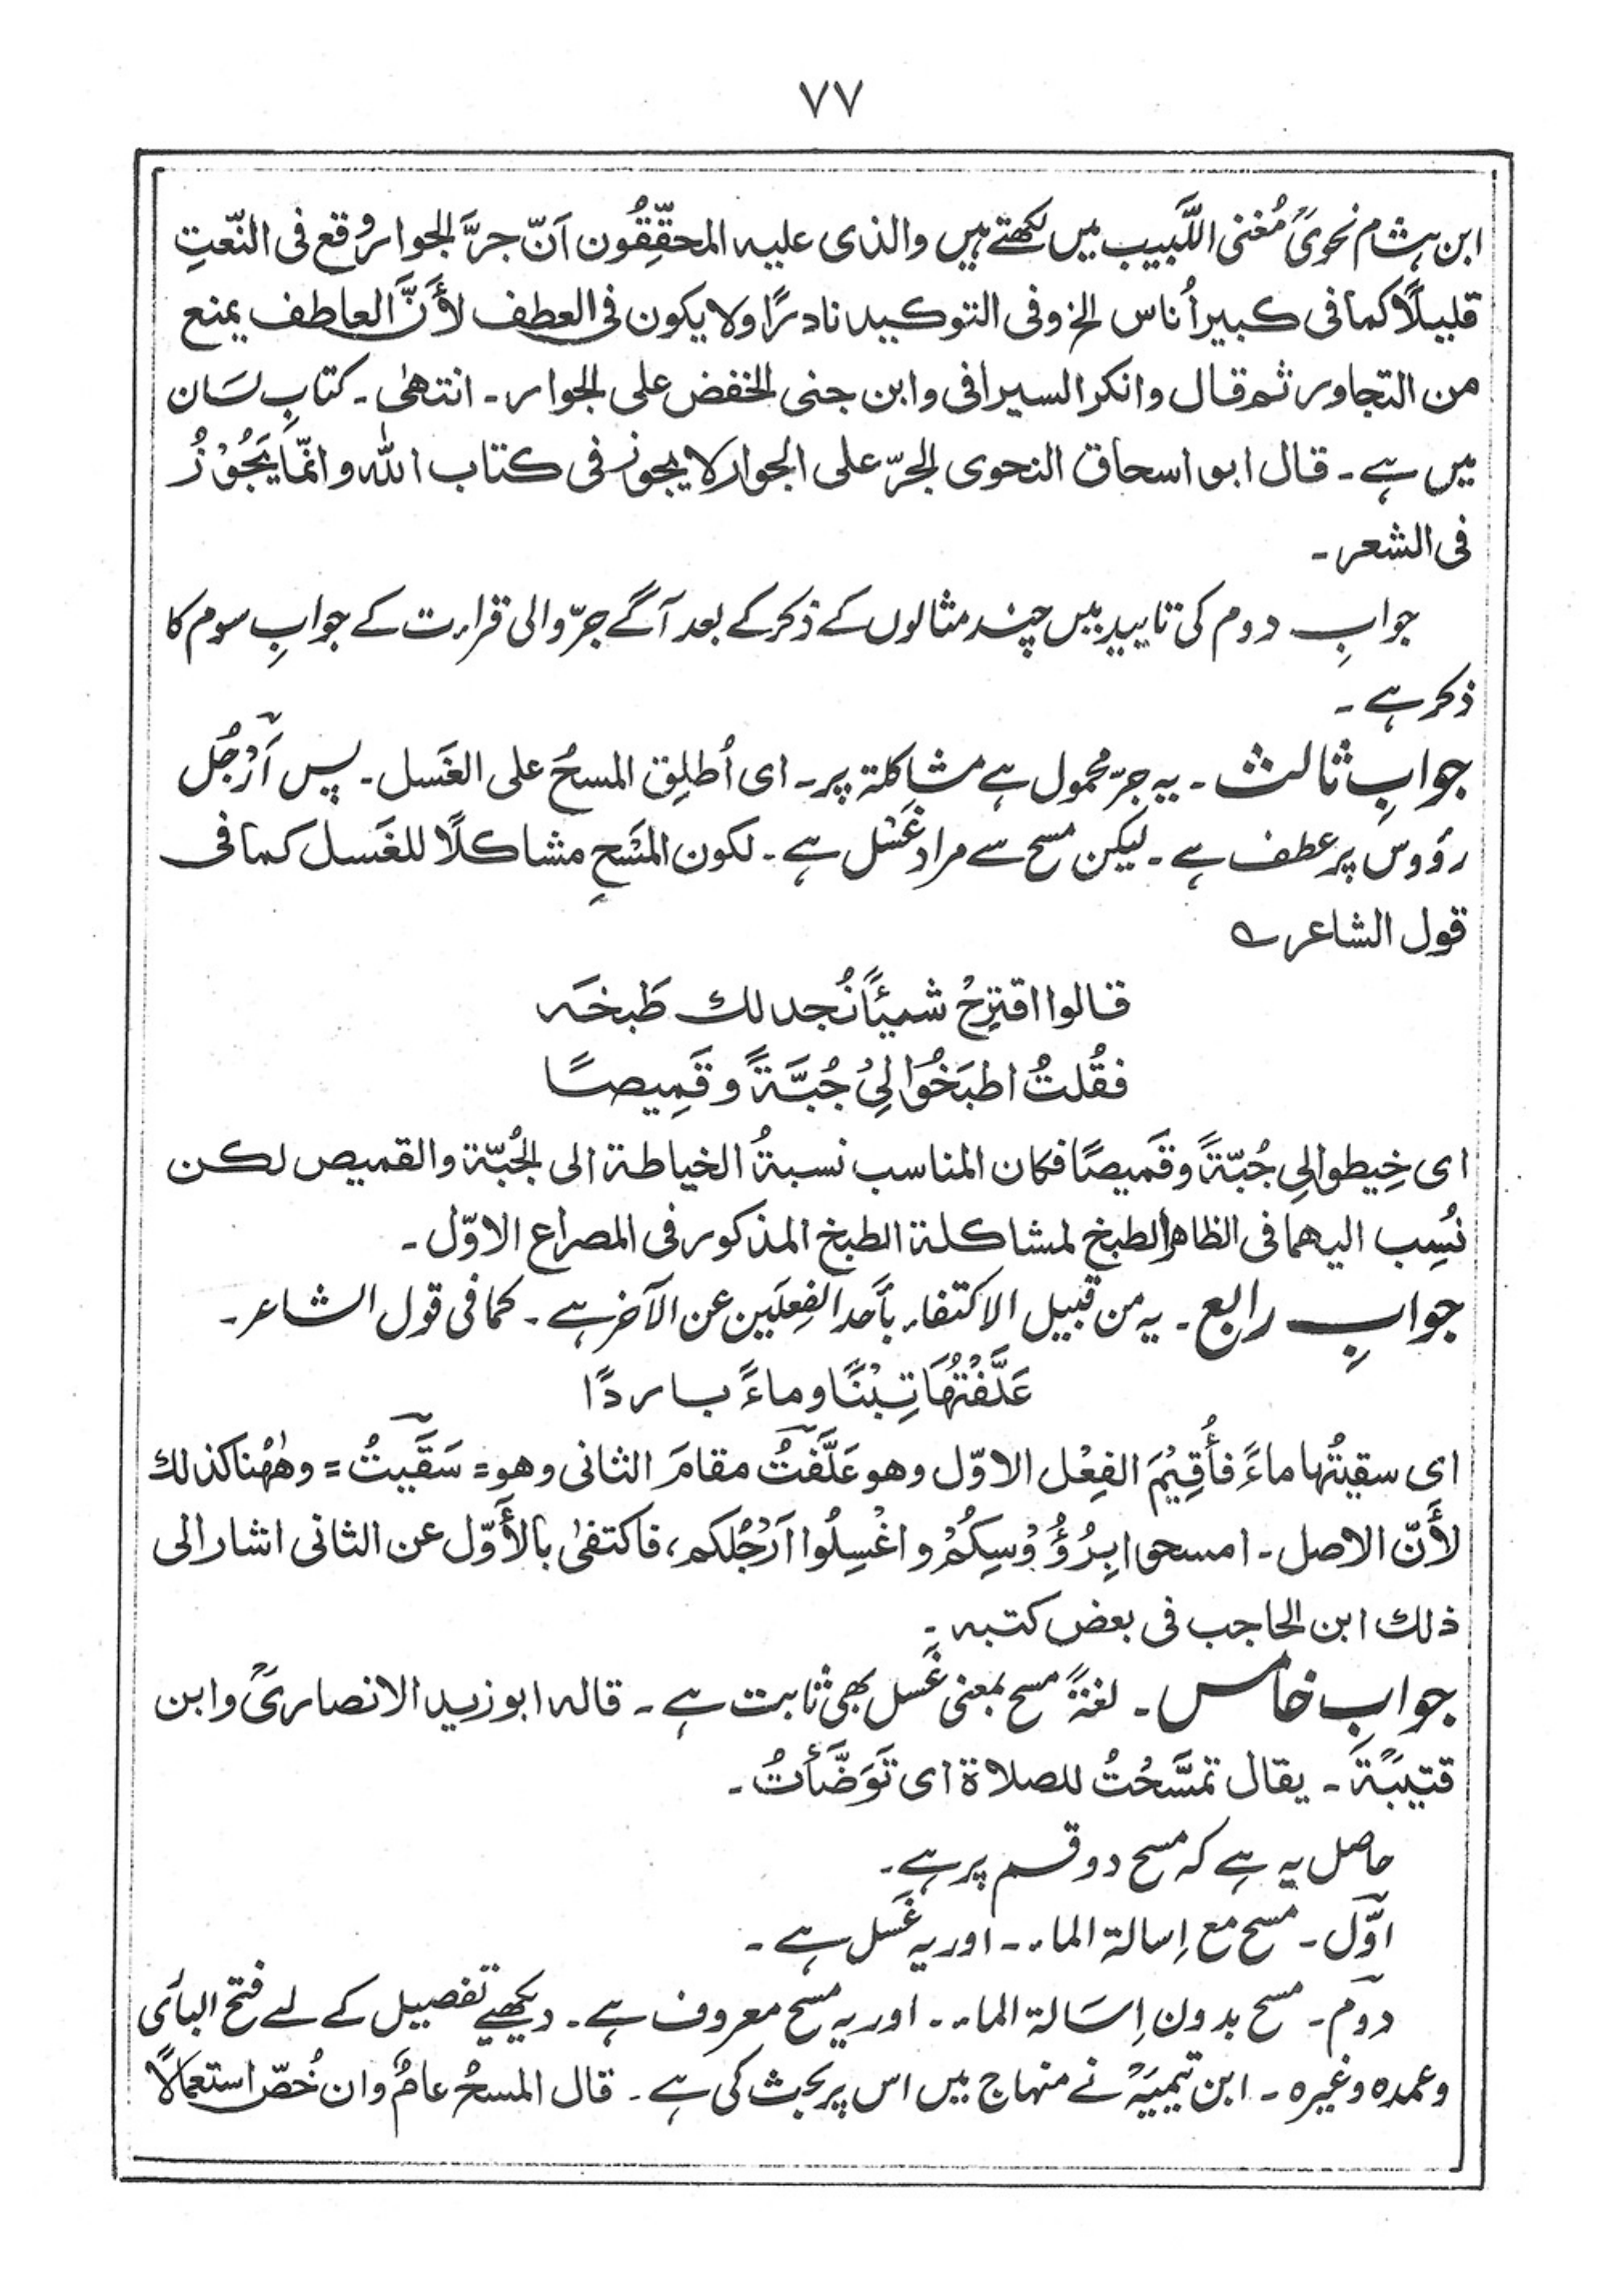 ۷۷
ابن ہشام نحویؒ مُغنی اللَّبیب میں لکھتے ہیں والذی علیہ المحقِّقُون اَنّ جرَّ الجوار وقع فی النّعتِ
قلیلًا کما فی کبیر اُناس الخ و فی التوکید نادرًا ولا یکون فی العطف لأنَّ العاطف یمنع
من التجاور ثم قال وانکر السیرافی وابن جنی الخفض علی الجوار ۔ انتھیٰ ۔ کتابِ لسَان
میں ہے ۔ قال ابو اسحاق النحوی الجرّ علی الجوار لا یجوز فی کتاب اللّٰہ و انّما یَجُوْزُ
فی الشعر ۔
جوابِ دوم کی تایید میں چند مثالوں کے ذکر کے بعد آگے جرّ والی قراءت کے جوابِ سوم کا
ذکر ہے ۔
جوابِ ثالث ۔ یہ جرّ محمول ہے مشاکلۃ پر ۔ ای اُطلِق المسحُ علی الغَسل ۔ پس اَرْجُل
رؤوس پر عطف ہے ۔ لیکن مسح سے مراد غَسْل ہے ۔ لکون المَسْحِ مشاکلًا للغَسل کما فی
قول الشاعر ؎
قالوا اقترِحْ شیئًا نُجد لك طَبخَہ
فقُلتُ اطبَخُوا لِیْ جُبَّةً وقَمِیصًا
ای خِیطوا لِی جُبّةً وقَمیصًا فکان المناسب نسبةُ الخیاطة الی الجُبّة والقمیص لکن
نُسِب الیھما فی الظاھر الطبخ لمشاکلة الطبخ المذکور فی المصراع الاوّل ۔
جوابِ رابع ۔ یہ من قبیل الاکتفاء بأحد الفِعلَین عن الآخر ہے ۔ کما فی قول الشاعر ۔
عَلَّفْتُهَا تِبْنًا وماءً باردًا
ای سقیتُها ماءً فأُقِیْمَ الفِعْل الاوّل وھو عَلَّفتُ مقامَ الثانی وھو = سَقَیتُ = وھٰھُنا کذلك
لأنّ الاصل ۔ امسحوا بِرُؤُوْسِکُمْ و اغْسِلُوا اَرْجُلکم، فاکتفیٰ بالأوّل عن الثانی اشار الی
ذلك ابن الحاجب فی بعض کتبہ ۔
جوابِ خامس ۔ لغۃً مسح بمعنی غَسل بھی ثابت ہے ۔ قالہ ابو زید الانصاریؒ وابن
قتیبَۃؒ ۔ یقال تمسَّحْتُ للصلاة ای تَوَضَّأتُ ۔
حاصل یہ ہے کہ مسح دو قسم پر ہے ۔
اوّل ۔ مسح مع اِسالۃ الماء ۔ اور یہ غَسل ہے ۔
دوم ۔ مسح بدون اِسَالۃ الماء ۔ اور یہ مسح معروف ہے ۔ دیکھیے تفصیل کے لے فتح الباری
وعمدہ وغیرہ ۔ ابن تیمیہؒ نے منہاج میں اس پر بحث کی ہے ۔ قال المسحُ عامٌ وان خُصّ استعمالًا